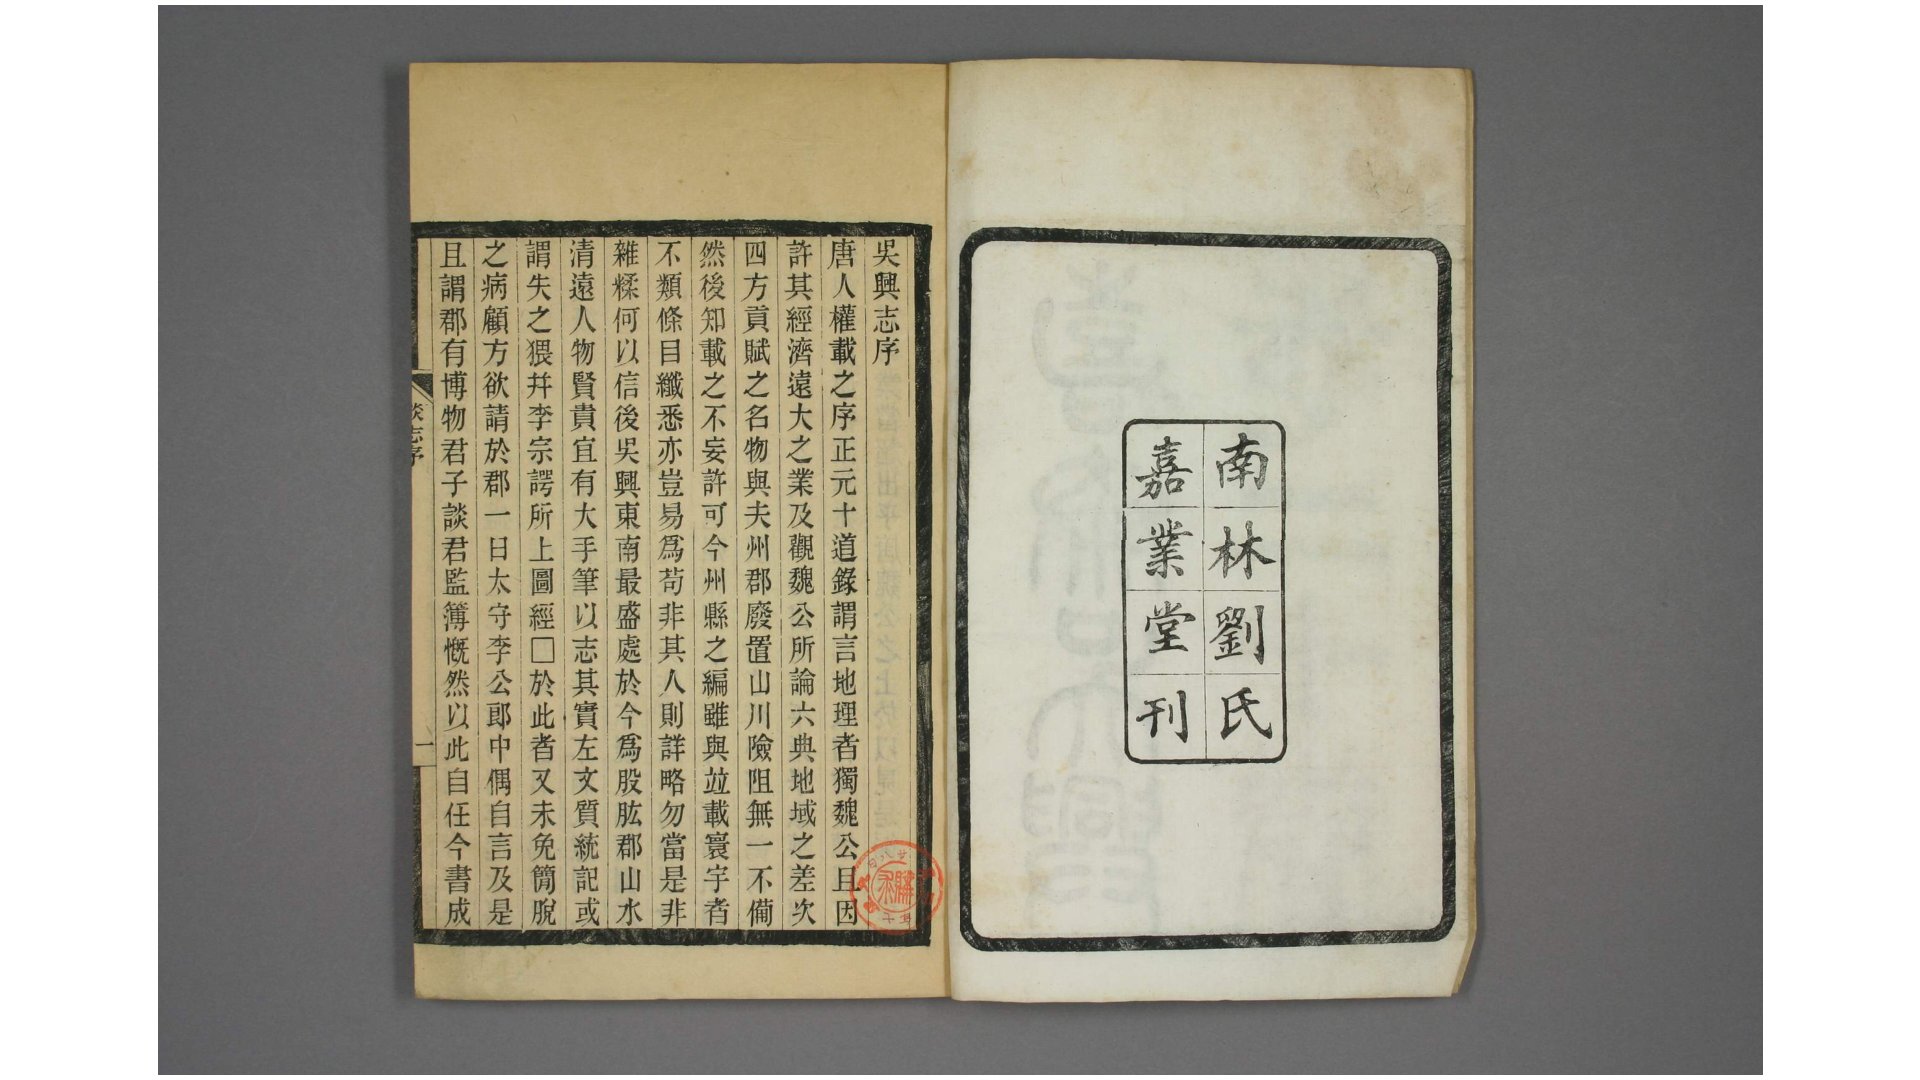 南林劉氏
嘉業堂刊
吳興志序
唐人權載之序正元十道錄謂言地理者獨魏公且因
許其經濟遠大之業及觀魏公所論六典地域之差次
四方貢賦之名物與夫州郡廢置山川險阻無一不僃
然後知載之不妄許可今州縣之編雖與竝載寰宇者
不類條目纖悉亦豈易爲茍非其人則詳略勿當是非
雜糅何以信後吳興東南最盛處於今爲股肱郡山水
清遠人物賢貴宜有大手筆以志其實左文質統記或
謂失之猥幷李宗諤所上圖經□於此者又未免簡脫
之病顧方欲請於郡一日太守李公郎中偶自言及是
且謂郡有博物君子談君監簿慨然以此自任今書成
談志序
一